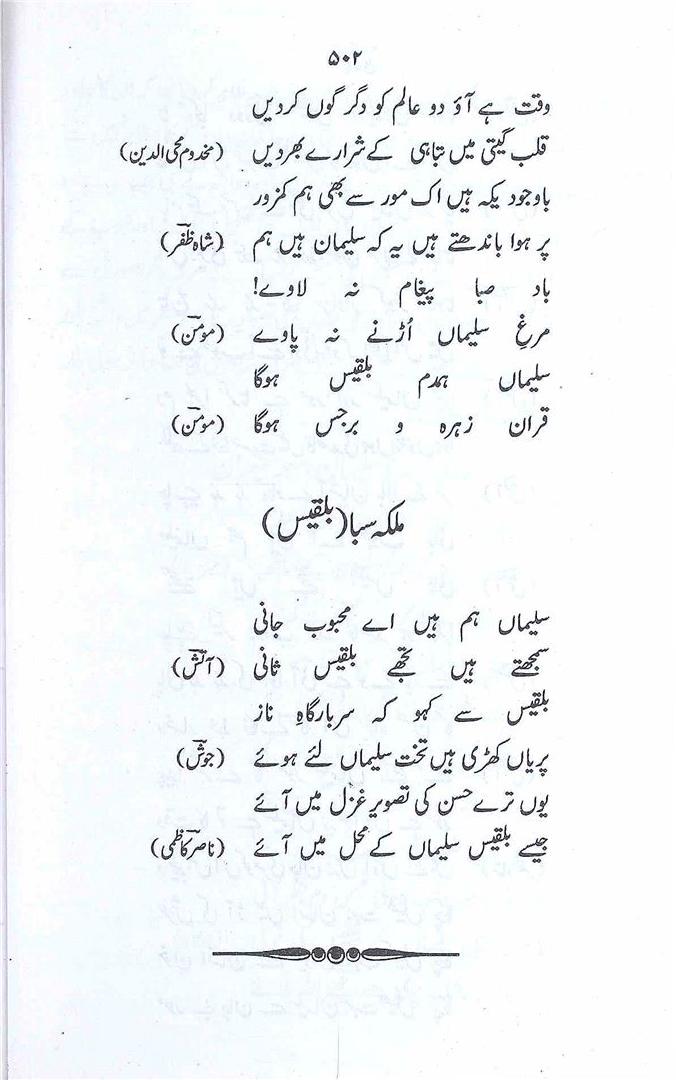 ۵۰۲
وقت ہے آؤ دو عالم کو دگر گوں کردیں
قلب گیتی میں تباہی کے شرارے بھردیں (مخدوم محی الدین)
باوجود یکہ ہیں اک مور سے بھی ہم کمزور
پر ہوا باندھتے ہیں یہ کہ سلیمان ہیں ہم (شاہ ظفر)
باد صبا پیغام نہ لاوے!
مرغِ سلیماں اُڑنے نہ پاوے (مومن)
سلیماں ہمدم بلقیس ہوگا
قران زہرہ و برجس ہوگا (مومن)
ملکہ سبا (بلقیس)
سلیماں ہم ہیں اے محبوب جانی
سمجھتے ہیں تجھے بلقیس ثانی (آتش)
بلقیس سے کہو کہ سربارگاہِ ناز
پریاں کھڑی ہیں تخت سلیماں لئے ہوئے (جوش)
یوں ترے حسن کی تصویر غزل میں آئے
جیسے بلقیس سلیماں کے محل میں آئے (ناصر کاظمی)